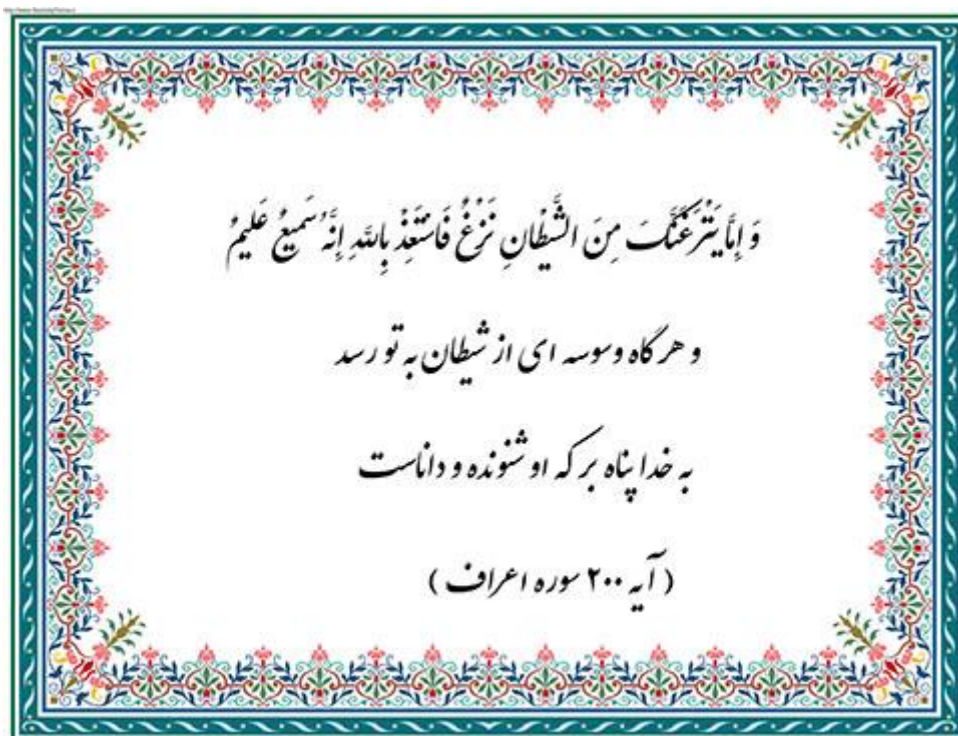 وَ إِمَّا يَنْزَغَنَّكَ مِنَ الشَّيْطَانِ نَزْغٌ فَاسْتَعِذْ بِاللَّهِ إِنَّهُ سَمِيعٌ عَلِيمٌ
و هر گاه وسوسه ای از شیطان به تو رسد
به خدا پناه بر که او شنونده و داناست
( آیه ۲۰۰ سوره اعراف )